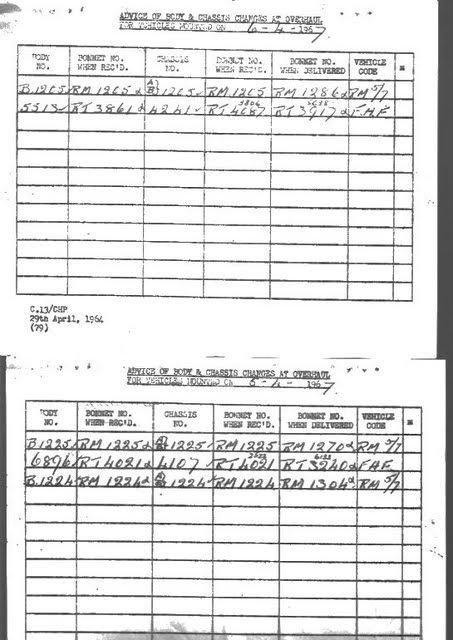 ADVICE OF BODY & CHASSIS CHANGES AT OVERHAUL
FOR VEHICLES MOUNTED ON 6-4-1967
BODY NO. BONNET NO. WHEN REC'D. CHASSIS NO. BONNET NO. WHEN REC'D. BONNET NO. WHEN DELIVERED VEHICLE CODE
B1205 RM 1205 1205 RM 1205 RM 1286 RM 5/7
5513 RT 3861 4241 RT 4687 RT 3917 FAF
C.13/CHP
29th April, 1964
(79)
ADVICE OF BODY & CHASSIS CHANGES AT OVERHAUL
FOR VEHICLES MOUNTED ON 5-4-1967
BODY NO. BONNET NO. WHEN REC'D. CHASSIS NO. BONNET NO. WHEN REC'D. BONNET NO. WHEN DELIVERED VEHICLE CODE
B1225 RM 1225 1225 RM 1225 RM 1270 RM 5/7
6896 RT 4021 4107 RT 4021 RT 3240 FAF
B1224 RM 1224 1224 RM 1224 RM 1304 RM 5/7